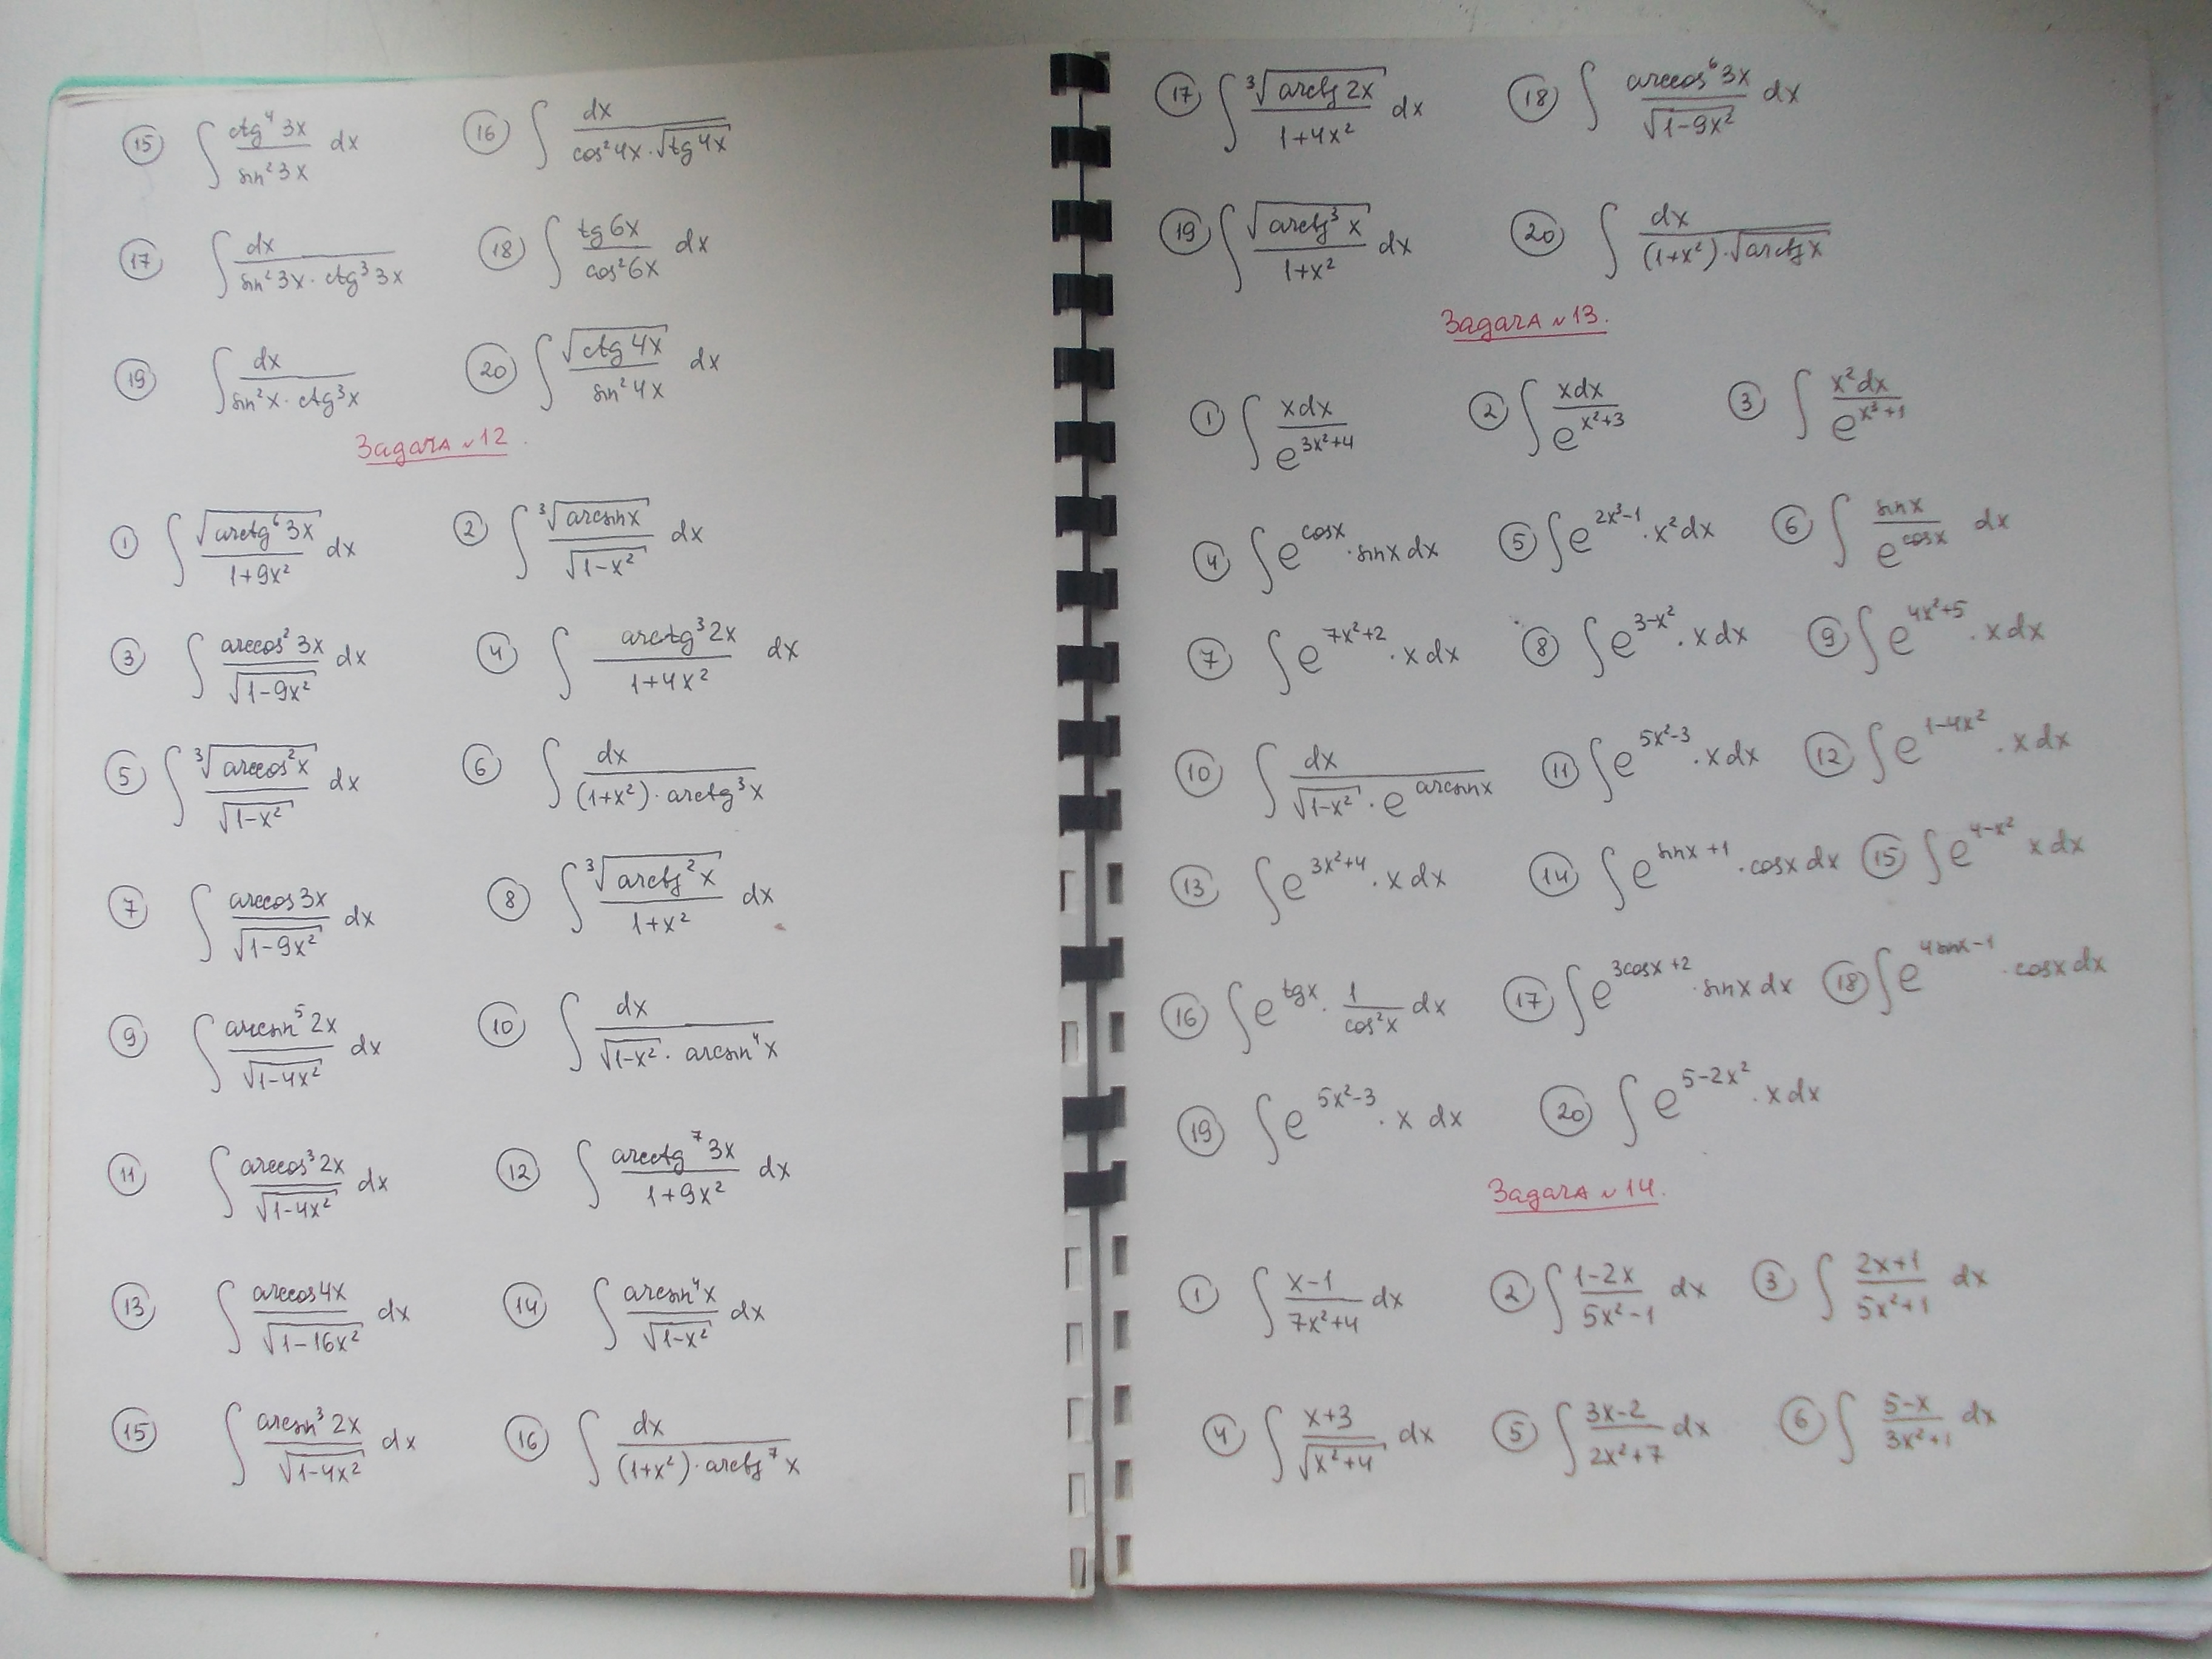 ⑮ ∫ ctg⁴3x / sin²3x dx ⑯ ∫ dx / (cos²4x · √(tg4x))
⑰ ∫ dx / (sin²3x · ctg³3x) ⑱ ∫ tg6x / cos²6x dx
⑲ ∫ dx / (sin²x · ctg³x) ⑳ ∫ √(ctg4x) / sin²4x dx
Задача №12.
① ∫ √(arctg⁶3x) / (1+9x²) dx ② ∫ ³√(arcsinx) / √(1-x²) dx
③ ∫ arccos²3x / √(1-9x²) dx ④ ∫ arctg³2x / (1+4x²) dx
⑤ ∫ ³√(arccos²x) / √(1-x²) dx ⑥ ∫ dx / ((1+x²) · arctg³x)
⑦ ∫ arccos3x / √(1-9x²) dx ⑧ ∫ ³√(arctg²x) / (1+x²) dx
⑨ ∫ arcsin⁵2x / √(1-4x²) dx ⑩ ∫ dx / (√(1-x²) · arcsin⁴x)
⑪ ∫ arccos³2x / √(1-4x²) dx ⑫ ∫ arcctg⁷3x / (1+9x²) dx
⑬ ∫ arccos4x / √(1-16x²) dx ⑭ ∫ arcsin⁴x / √(1-x²) dx
⑮ ∫ arcsin³2x / √(1-4x²) dx ⑯ ∫ dx / ((1+x²) · arctg⁷x)
⑰ ∫ ³√(arctg2x) / (1+4x²) dx ⑱ ∫ arccos⁶3x / √(1-9x²) dx
⑲ ∫ √(arctg³x) / (1+x²) dx ⑳ ∫ dx / ((1+x²) · √(arctgx))
Задача №13.
① ∫ xdx / e^(3x²+4) ② ∫ xdx / e^(x²+3) ③ ∫ x²dx / e^(x³+1)
④ ∫ e^(cosx) · sinx dx ⑤ ∫ e^(2x³-1) · x²dx ⑥ ∫ sinx / e^(cosx) dx
⑦ ∫ e^(7x²+2) · x dx ⑧ ∫ e^(3-x²) · x dx ⑨ ∫ e^(4x²+5) · x dx
⑩ ∫ dx / (√(1-x²) · e^(arcsinx)) ⑪ ∫ e^(5x²-3) · x dx ⑫ ∫ e^(1-4x²) · x dx
⑬ ∫ e^(3x²+4) · x dx ⑭ ∫ e^(sinx+1) · cosx dx ⑮ ∫ e^(4-x²) x dx
⑯ ∫ e^(tgx) · 1 / cos²x dx ⑰ ∫ e^(3cosx+2) · sinx dx ⑱ ∫ e^(4sinx-1) · cosx dx
⑲ ∫ e^(5x²-3) · x dx ⑳ ∫ e^(5-2x²) · x dx
Задача №14.
① ∫ (x-1) / (7x²+4) dx ② ∫ (1-2x) / (5x²-1) dx ③ ∫ (2x+1) / (5x²+1) dx
④ ∫ (x+3) / √(x²+4) dx ⑤ ∫ (3x-2) / (2x²+7) dx ⑥ ∫ (5-x) / (3x²+1) dx